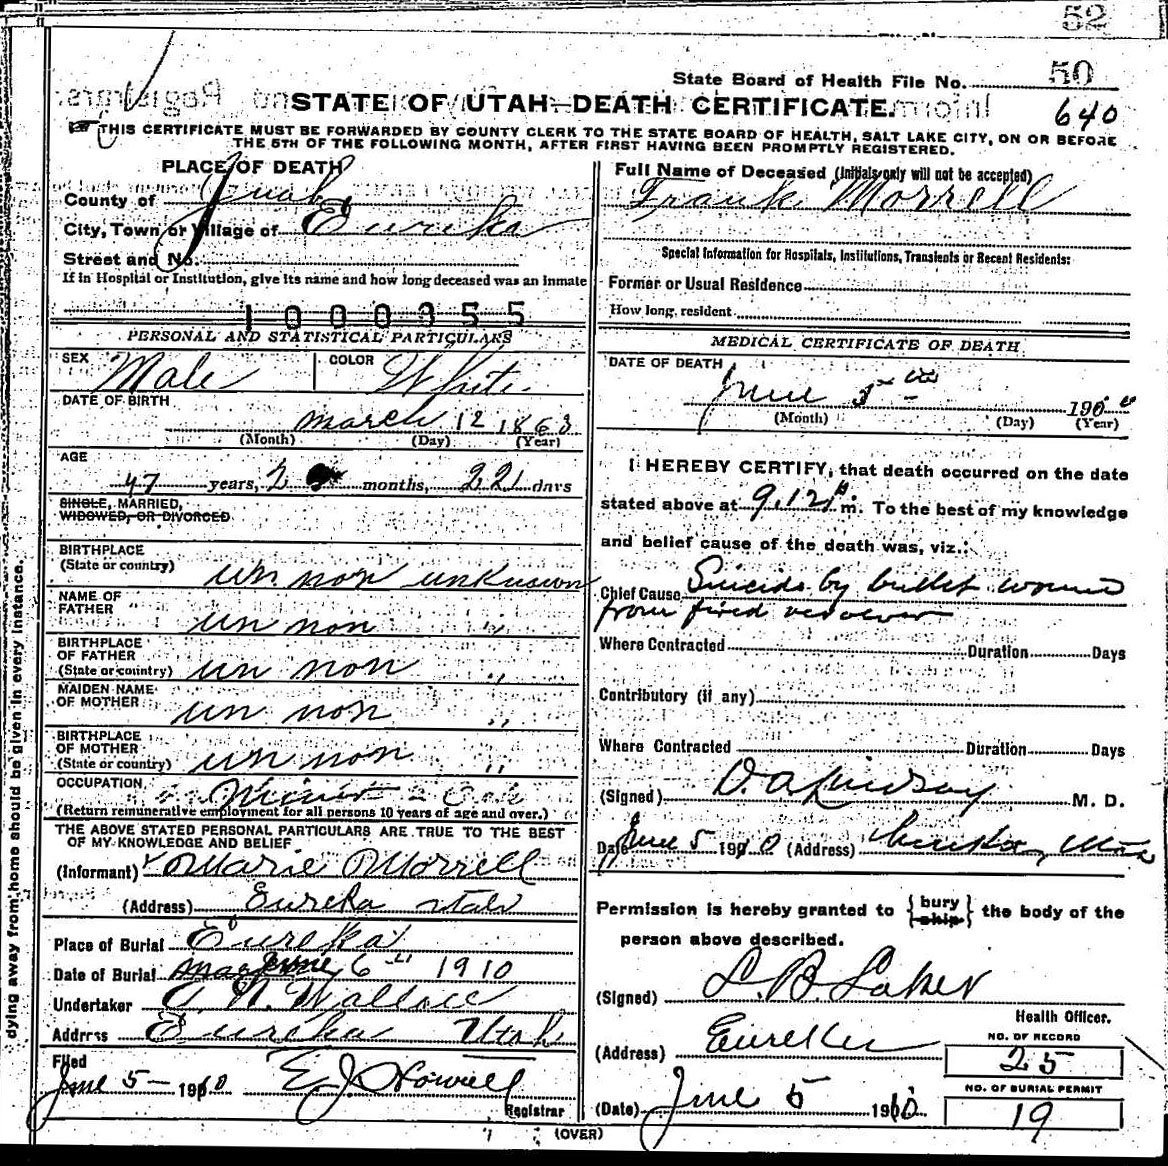 52
State Board of Health File No. 50
STATE OF UTAH—DEATH CERTIFICATE.
640
THIS CERTIFICATE MUST BE FORWARDED BY COUNTY CLERK TO THE STATE BOARD OF HEALTH, SALT LAKE CITY, ON OR BEFORE
THE 5TH OF THE FOLLOWING MONTH, AFTER FIRST HAVING BEEN PROMPTLY REGISTERED.
PLACE OF DEATH
County of Juab
City, Town or Village of Eureka
Street and No.
If in Hospital or Institution, give its name and how long deceased was an inmate
1000355
PERSONAL AND STATISTICAL PARTICULARS
SEX Male COLOR White
DATE OF BIRTH
march 12 1863
(Month) (Day) (Year)
AGE
47 years, 2 months, 221 days
SINGLE, MARRIED,
WIDOWED, OR DIVORCED
BIRTHPLACE
(State or country) un non unknown
NAME OF
FATHER un non ,,
BIRTHPLACE
OF FATHER
(State or country) un non ,,
MAIDEN NAME
OF MOTHER un non ,,
BIRTHPLACE
OF MOTHER
(State or country) un non ,,
OCCUPATION
(Return remunerative employment for all persons 10 years of age and over.)
THE ABOVE STATED PERSONAL PARTICULARS ARE TRUE TO THE BEST
OF MY KNOWLEDGE AND BELIEF
(Informant) Marie Morrell
(Address) Eureka utah
Place of Burial Eureka
Date of Burial June 6 1910
Undertaker Wallace
Address Eureka Utah
Filed
June 5 – 1910 E. J. Howell
Registrar
Full Name of Deceased (Initials only will not be accepted)
Frank Morrell
Special Information for Hospitals, Institutions, Transients or Recent Residents:
Former or Usual Residence
How long resident
MEDICAL CERTIFICATE OF DEATH
DATE OF DEATH
June 5th 190
(Month) (Day) (Year)
I HEREBY CERTIFY, that death occurred on the date
stated above at 9.12 m. To the best of my knowledge
and belief cause of the death was, viz.:
Chief Cause Suicide by bullet wound
from fired revolver
Where Contracted Duration Days
Contributory (if any)
Where Contracted Duration Days
(Signed) M. D.
Date June 5 1910 (Address) Eureka, Utah
Permission is hereby granted to {bury ship} the body of the
person above described.
(Signed) L. B. Laker
Health Officer.
(Address) Eureka
NO. OF RECORD
25
NO. OF BURIAL PERMIT
(Date) June 5 1910. 19
(OVER)
dying away from home should be given in every instance.